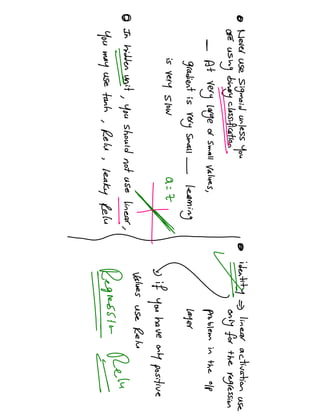 Never use Sigmoid unless you
are using binary classification
— At very large or small values,
gradient is very small — learning
is very slow
a = z
In hidden unit, you should not use linear,
you may use tanh, Relu, leaky Relu
identity ⇒ linear activation use
only for the regression
problem in the o/p
layer
if you have only positive
values use Relu
Regression Relu